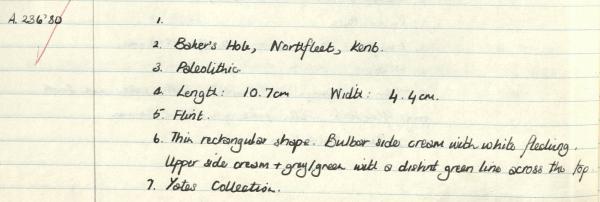 A. 236'80 1.
2. Baker's Hole, Northfleet, Kent.
3. Paleolithic
4. Length: 10.7cm Width: 4.4cm.
5. Flint.
6. Thin rectangular shape. Bulbar side cream with white flecking.
Upper side cream + grey/green with a distinct green line across the top
7. Yates Collection.